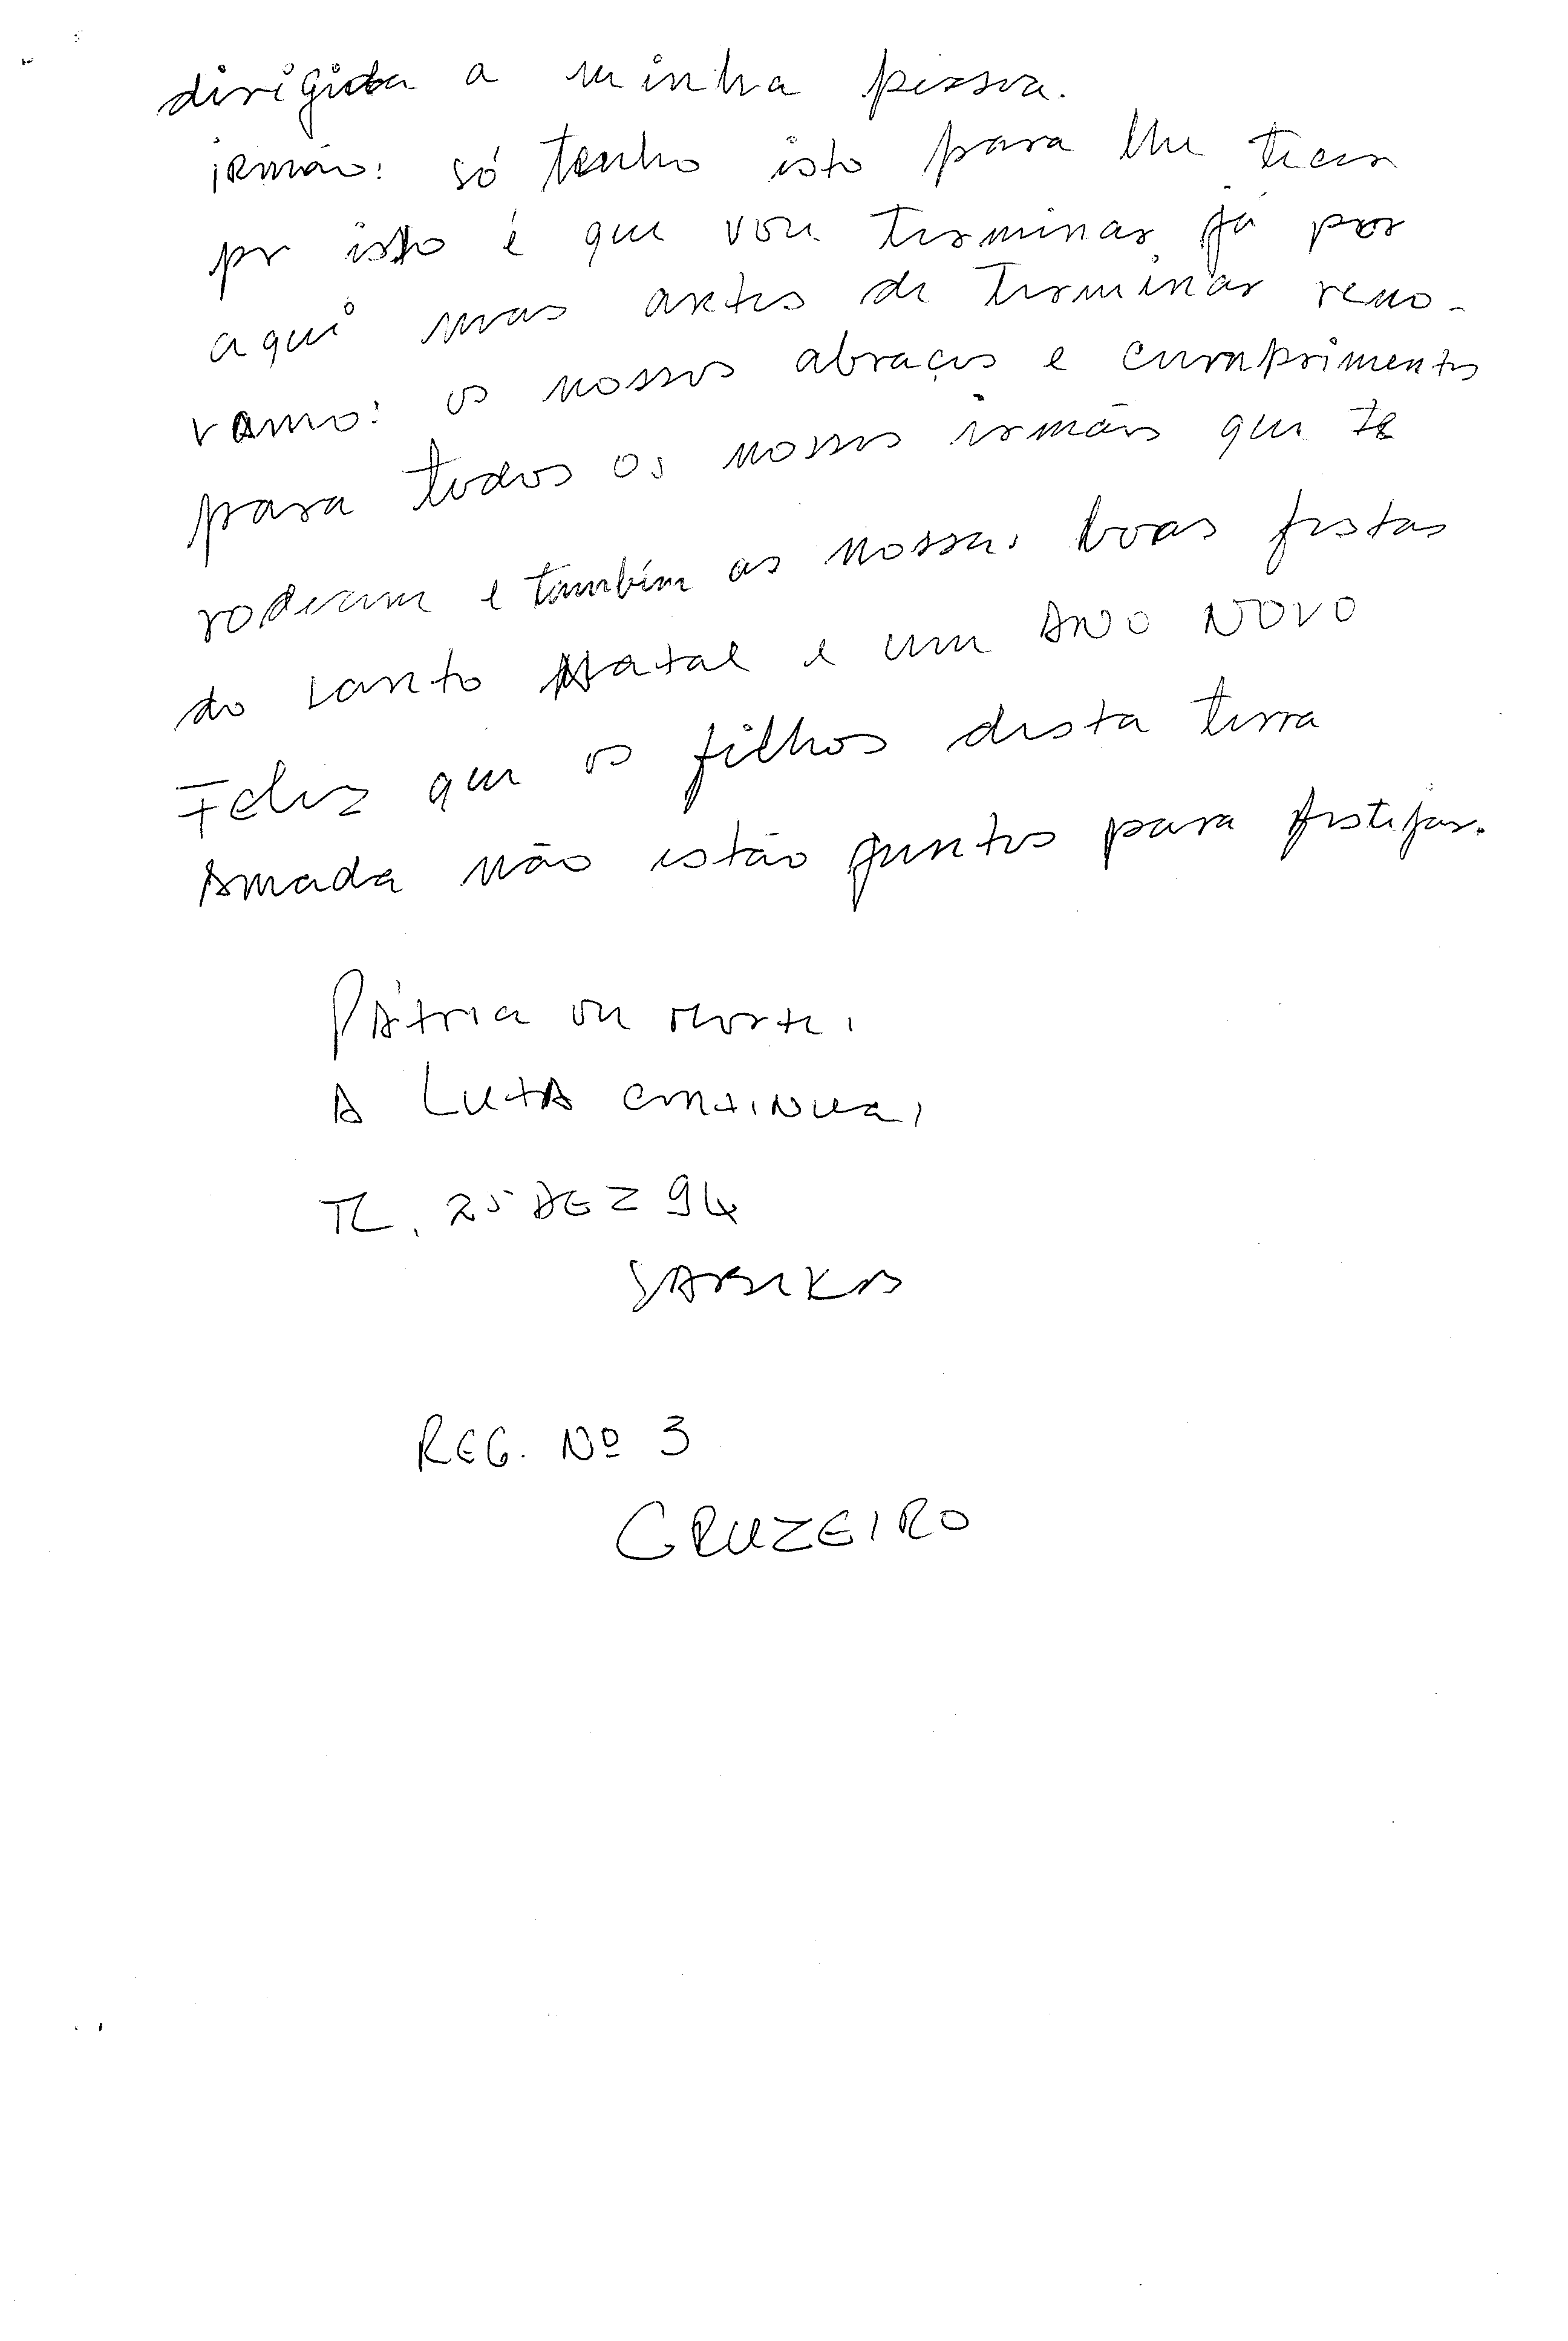 dirigida a minha pessoa.
irmão: só tenho isto para lhe tecer
por isto é que vou terminar já por
aqui mas antes de terminar reno-
vamo: os nossos abraços e cumprimentos
para todos os nossos irmãos que te
rodeiam e também as nossas boas festas
do santo Natal e um ANO NOVO
Feliz que os filhos desta terra
Amada não estão juntos para festejar.
PÁtria ou Morte!
A LUTA CONTINUA!
TL, 25 DEZ 94
REG. Nº 3
CRUZEIRO